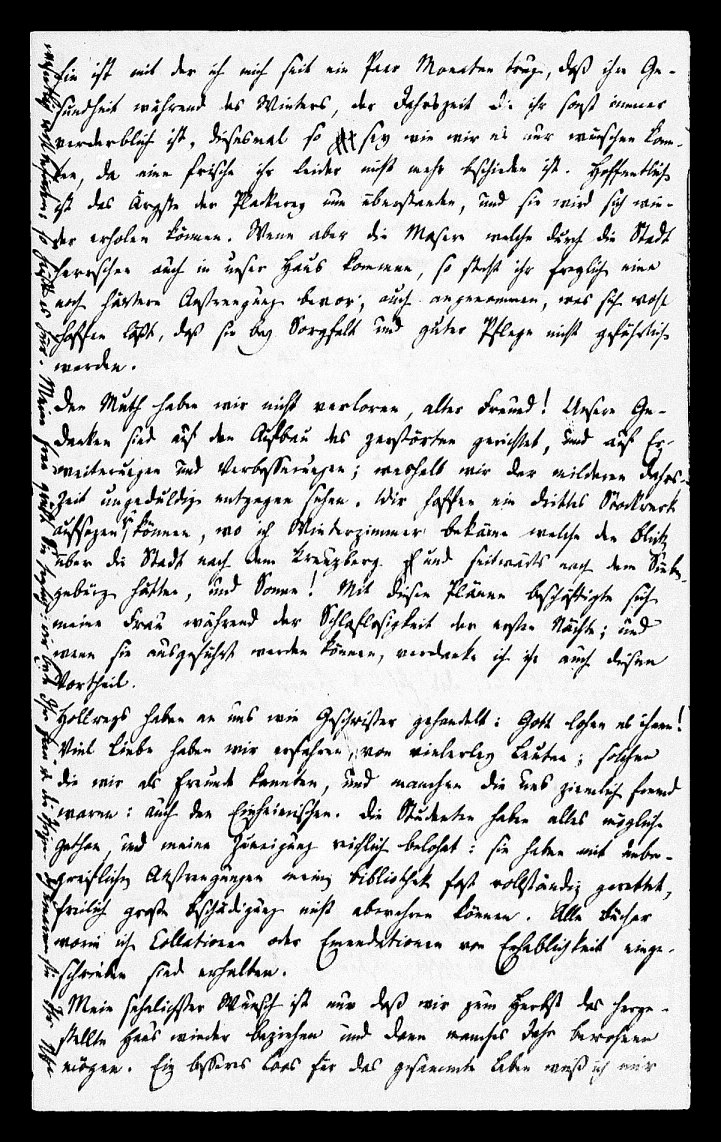 hin ist mit der ich mich seit ein Paar Monaten trug, daß ihre Ge-
sundheit während des Winters, der Jahrszeit die ihr sonst immer
verderblich ist, diesesmal so sey wie wir es nur wünschen konn-
ten, da eine frische ihr leider nicht mehr beschieden ist. Hoffentlich
ist das Ärgste der Plackerey nun überstanden, und sie wird sich wie-
der erholen können. Wenn aber die Masern welche durch die Stadt
herrschen auch in unser Haus kommen, so steht ihr freylich eine
noch härtere Anstrengung bevor; auch angenommen, was sich wohl
hoffen läßt, daß sie bey Sorgfalt und guter Pflege nicht gefährlich
werden.
Den Muth haben wir nicht verloren, alter Freund! Unsere Ge-
danken sind auf den Aufbau des zerstörten gerichtet, und auf Er-
weiterungen und Verbesserungen; weshalb wir der milderen Jahrs-
zeit ungeduldig entgegen sehen. Wir hoffen ein drittes Stockwerk
aufsezen zu können, wo ich Winterzimmer bekäme welche den Blick
über die Stadt nach dem Kreuzberg und seitwärts nach dem Sieben-
gebürg hätten, und Sonne! Mit diesen Plänen beschäftigte sich
meine Frau während der Schlaflosigkeit der ersten Nächte; und
wenn sie ausgeführt werden können, verdanke ich ihr auch diesen
Vortheil.
Hollwegs haben an uns wie Geschwister gehandelt: Gott lohne es ihnen!
Viel Liebe haben wir erfahren, von vielerley Leuten; solchen
die wir als Freunde kannten, und manchen die uns ziemlich fremd
waren: auch den Einheimischen. Die Studenten haben alles mögliche
gethan, und meine Zuneigung reichlich belohnt: sie haben mit unbe-
greiflichen Anstrengungen meine Bibliothek fast vollständig gerettet,
freilich große Beschädigung nicht abwehren können. Alle Bücher
worin ich Collationen oder Emendationen von Erheblichkeit einge-
schrieben sind erhalten.
Mein sehnlichster Wunsch ist nur daß wir zum Herbst das herge-
stellte Haus wieder beziehen und dann manches Jahr bewohnen
mögen. Ein besseres Loos für das gesammte Leben weiß ich mir
so hier. Meine Frau grüßt Sie herzlich: